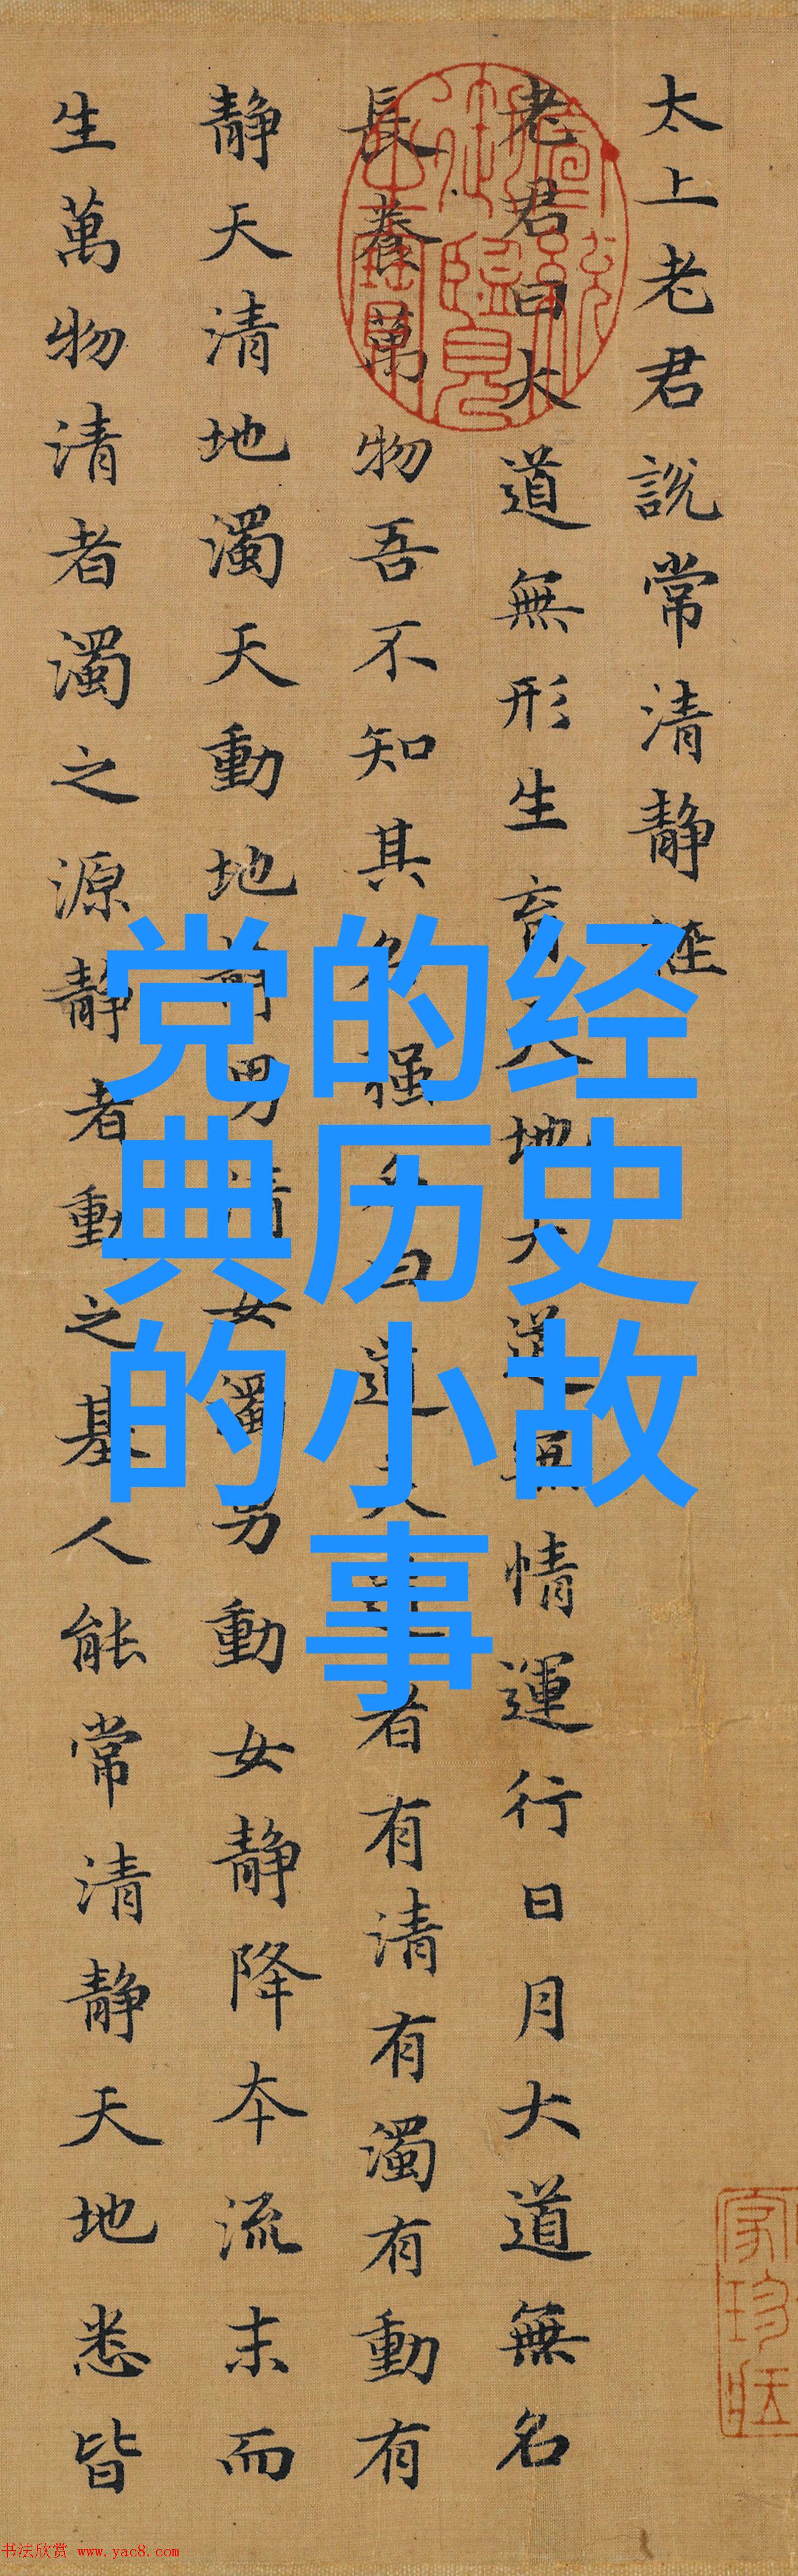 太上老君說常清靜經
老君曰大道無形生育天地大道無情運行日月大道無名
長養萬物吾不知其名強名曰道夫道者有清有濁有動有
靜天清地濁天動地靜男清女濁男動女靜降本流末而
生萬物清者濁之源靜者動之基人能常清靜天地悉皆
党的经
典历史
的小故
事
书法欣赏 www.yac8.com